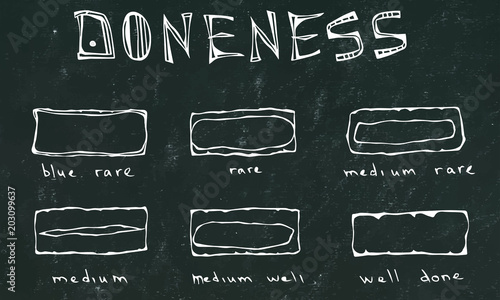 DONENESS
blue rare
rare
medium rare
medium
medium well
well done
203099637